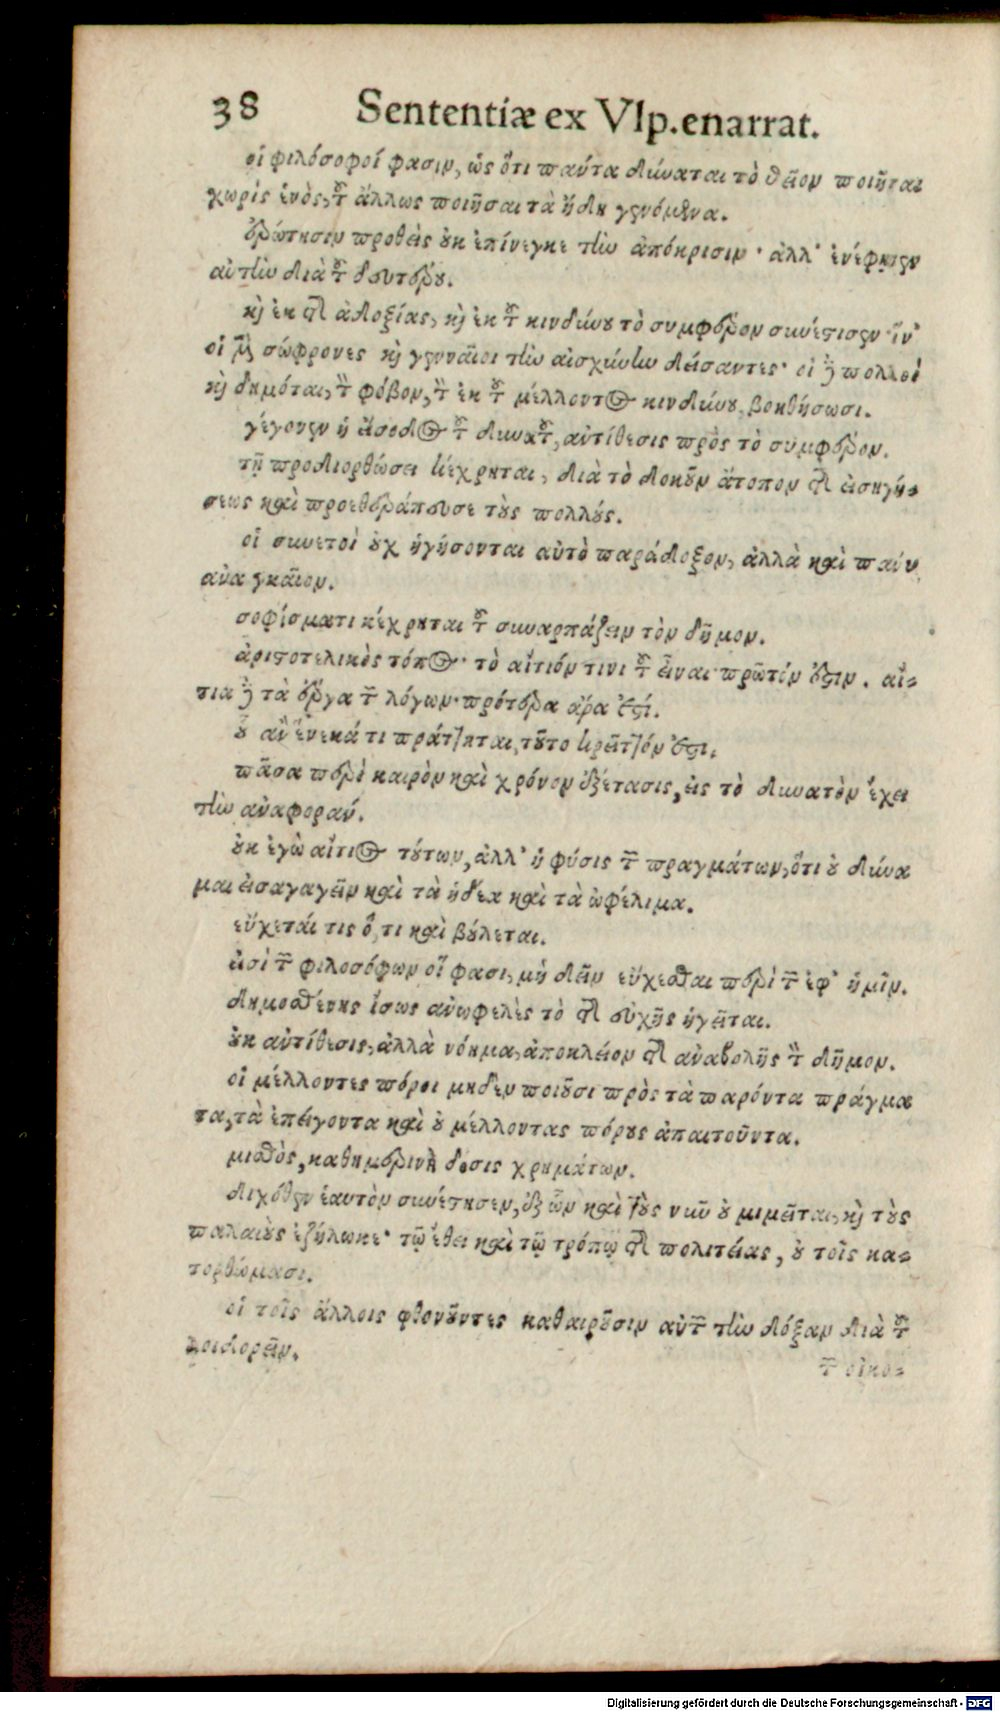 38 Sententiæ ex Vlp. enarrat.
οἱ φιλόσοφοί φασιν, ὡς ὅτι πάντα δύναται τὸ θεῖον ποιῆσαι
χωρὶς ἑνὸς, τοῦ ἄλλως ποιῆσαι τὰ ἤδη γενόμενα.
ἐρώτησιν προθεὶς οὐκ ἐπίνεγκε τὴν ἀπόκρισιν· ἀλλ' ἐνέφηνεν
αὐτὴν διὰ τοῦ δευτέρου.
καὶ ἐκ τῆς ἀδοξίας, καὶ ἐκ τοῦ κινδύνου τὸ συμφέρον συνέστησεν· ἵν'
οἱ μὲν σώφρονες καὶ γενναῖοι τὴν αἰσχύνην δείσαντες· οἱ δὲ πολλοὶ
καὶ δημόται, τὸν φόβον, τὸν ἐκ τοῦ μέλλοντος κινδύνου, βοηθήσωσι.
γέγονεν ἡ εἴσοδος τοῦ δυνατοῦ, ἀντίθεσις πρὸς τὸ συμφέρον.
τῇ προδιορθώσει κέχρηται, διὰ τὸ δοκοῦν ἄτοπον τῆς εἰσηγή-
σεως καὶ προεθεράπευσε τοὺς πολλούς.
οἱ συνετοὶ οὐχ ἡγήσονται αὐτὸ παράδοξον, ἀλλὰ καὶ πάνυ
ἀναγκαῖον.
σοφίσματι κέχρηται τοῦ συναρπάζειν τὸν δῆμον.
ἀριστοτελικὸς τόπος· τὸ αἴτιόν τινι τοῦ εἶναι πρῶτόν ἐστιν. αἴ-
τια δὲ τὰ ἔργα τῶν λόγων· πρότερα ἄρα ἐστί.
οὗ ἂν ἕνεκά τι πράττηται, τοῦτο κρεῖττόν ἐστι.
πᾶσα περὶ καιρὸν καὶ χρόνον ἐξέτασις, εἰς τὸ δυνατὸν ἔχει
τὴν ἀναφοράν.
οὐκ ἐγὼ αἴτιος τούτων, ἀλλ' ἡ φύσις τῶν πραγμάτων, ὅτι οὐ δύνα
μαι εἰσαγαγεῖν καὶ τὰ ἡδέα καὶ τὰ ὠφέλιμα.
εὔχεταί τις ὅ, τι καὶ βούλεται.
εἰσὶ τῶν φιλοσόφων οἵ φασι, μὴ δεῖν εὔχεσθαι περὶ τῶν ἐφ' ἡμῖν.
δημοσθένης ἴσως ἀνωφελὲς τὸ τῆς εὐχῆς ἡγεῖται.
οὐκ ἀντίθεσις, ἀλλὰ νόημα, ἀποκλείον τῆς ἀναβολῆς τὸν δῆμον.
οἱ μέλλοντες πόροι μηδὲν ποιοῦσι πρὸς τὰ παρόντα πράγμα
τα, τὰ ἐπείγοντα καὶ οὐ μέλλοντας πόρους ἀπαιτοῦντα.
μισθὸς, καθημερινὴ δόσις χρημάτων.
διχόθεν ἑαυτὸν συνέστησεν, ἐξ ὧν καὶ τοὺς νῦν οὐ μιμεῖται, καὶ τοὺς
παλαιοὺς ἐζήλωκε· τῷ ἔθει καὶ τῷ τρόπῳ τῆς πολιτείας, οὐ τοῖς κα-
τορθώμασι.
οἱ τοῖς ἄλλοις φθονοῦντες καθαιροῦσιν αὐτῶν τὴν δόξαν διὰ τοῦ
λοιδορεῖν.
τῶν οἰκο-
Digitalisierung gefördert durch die Deutsche Forschungsgemeinschaft - DFG